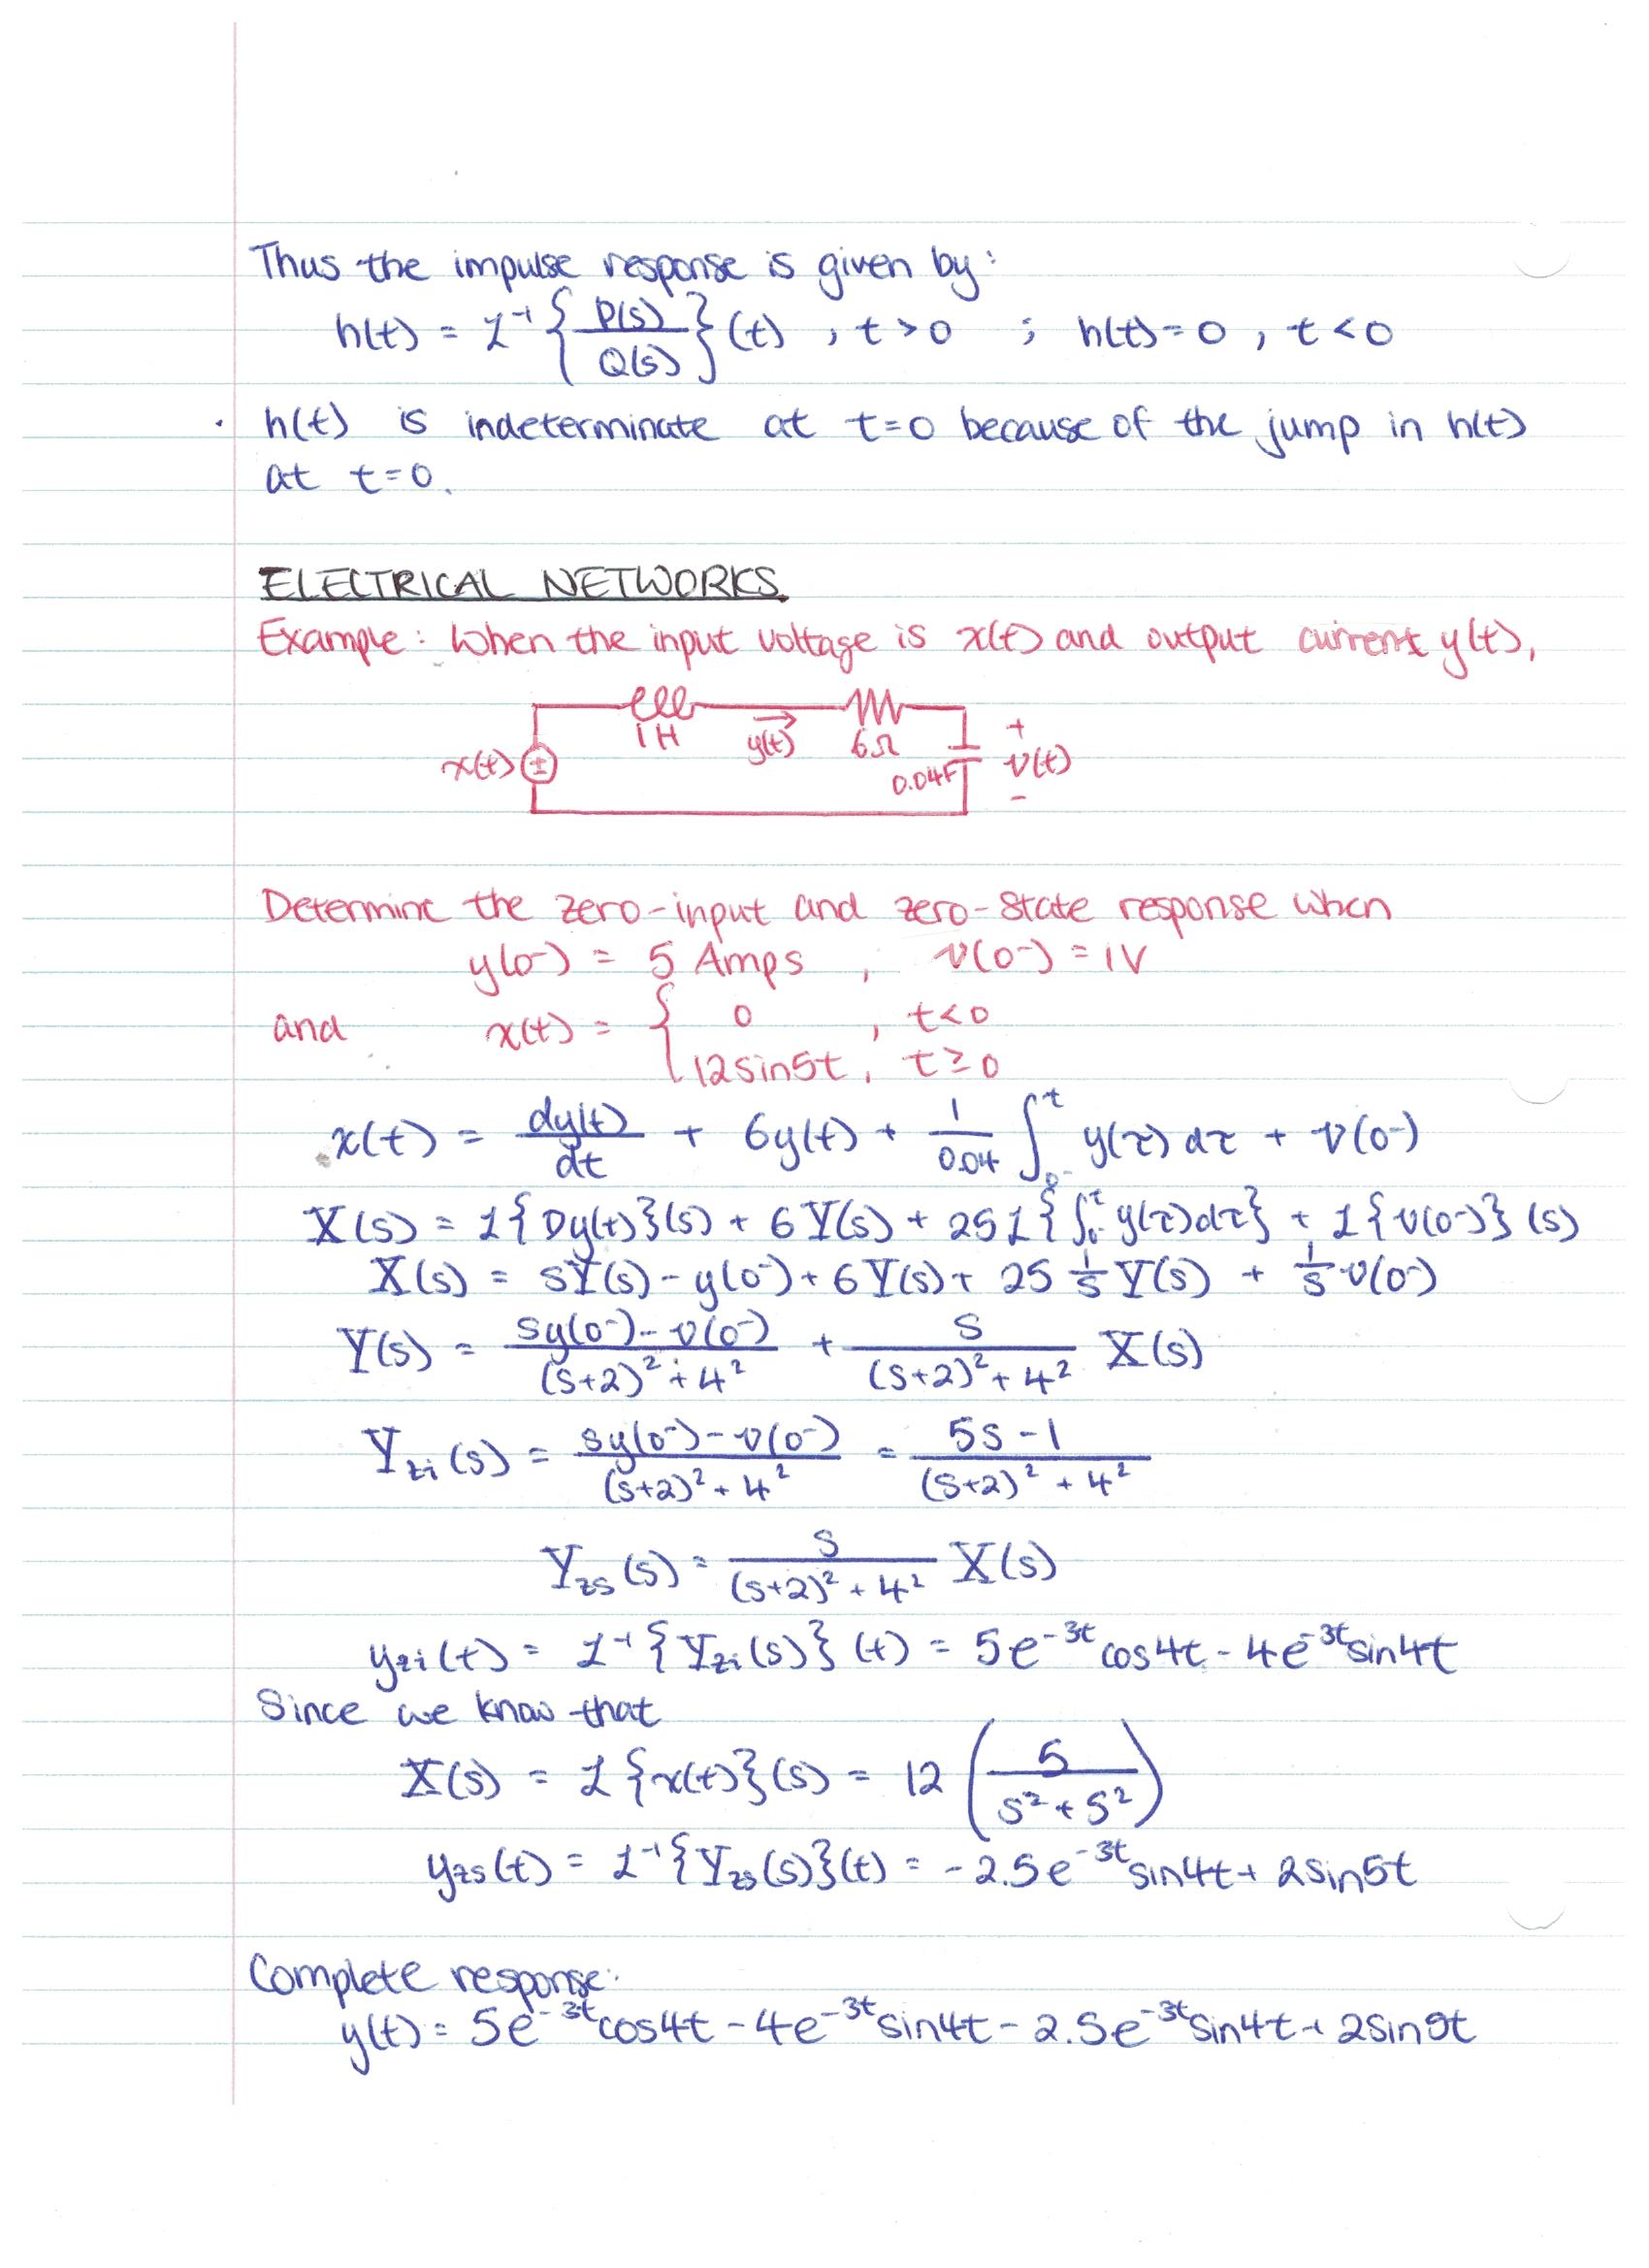 Thus the impulse response is given by:
h(t) = L⁻¹ { P(s) / Q(s) } (t) , t > 0 ; h(t) = 0 , t < 0
· h(t) is indeterminate at t=0 because of the jump in h(t)
at t=0.
ELECTRICAL NETWORKS
Example: When the input voltage is x(t) and output current y(t),
1H
y(t)
6Ω
x(t) ±
0.04F
+
v(t)
-
Determine the zero-input and zero-state response when
y(0⁻) = 5 Amps , v(0⁻) = 1V
and x(t) = { 0 , t<0
12sin5t , t≥0
x(t) = dy(t)/dt + 6y(t) + 1/0.04 ∫₀₋ᵗ y(τ) dτ + v(0⁻)
X(s) = L{Dy(t)}(s) + 6Y(s) + 25L{∫₀₋ᵗ y(τ)dτ} + L{v(0⁻)}(s)
X(s) = sY(s) - y(0⁻) + 6Y(s) + 25 1/s Y(s) + 1/s v(0⁻)
Y(s) = (sy(0⁻) - v(0⁻)) / ((s+2)² + 4²) + s / ((s+2)² + 4²) X(s)
Yzi(s) = (sy(0⁻) - v(0⁻)) / ((s+2)² + 4²) = (5s - 1) / ((s+2)² + 4²)
Yzs(s) = s / ((s+2)² + 4²) X(s)
yzi(t) = L⁻¹{Yzi(s)}(t) = 5e⁻³ᵗcos4t - 4e⁻³ᵗsin4t
Since we know that
X(s) = L{x(t)}(s) = 12 ( 5 / (s² + 5²) )
yzs(t) = L⁻¹{Yzs(s)}(t) = -2.5e⁻³ᵗsin4t + 2sin5t
Complete response:
y(t) = 5e⁻³ᵗcos4t - 4e⁻³ᵗsin4t - 2.5e⁻³ᵗsin4t + 2sin5t